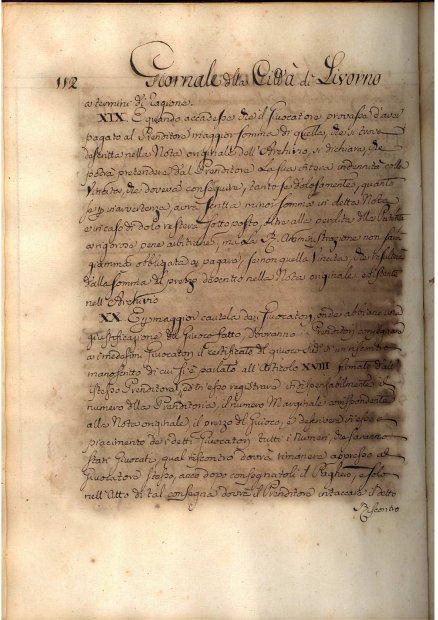 112 Giornale della Città di Livorno
a termini di Ragione.
XIX. E quando accadesse, che il Giuocatore provasse d'aver
pagato al Prenditore maggior somma di quella, che si trova
descritta nella Nota originale dell'Archivio, si dichiara, che
possa pretendere dal Prenditore la sua intera indennità colla
Vincita, che doveva conseguire, tanto se dolosamente, quanto
se p inavvertenza, avrà scritta minor somma in detta Nota
e in caso di dolo resterà sottoposto, oltre alla perdita della
a rigorose pene arbitrarie, ma la R. Amministrazione non sarà
grammai obbligata a pagare, se non quella Vincita, che risulterà
dalla somma di prezzo descritto nella Nota originale, esistente
nell'Archivio
XX. E p maggior cautela dei Giuocatori, onde abbiano una
giustificazione del Giuoco fatto, dovranno i Prenditori consegnare
a i medesimi Giuocatori il certificato di giuoco cioè un riscontro
manoscritto di cui si è parlato all'Articolo XVIII firmato dall'
istesso Prenditore, ed in esso registrare indispensabilmente il
numero della Prenditoria, il numero Marginale corrispondente
alla Nota originale, il prezzo del Giuoco, e descrivere in esso a
piacimento de i detti Giuocatori tutti i Numeri, che saranno
stati Giuocati, qual riscontro dovrà rimanere appresso al
Giuocatore stesso, anco dopo consegnatoli il Paghero, e solo
nell'Atto di tal consegna dovrà il Prenditore intaccare il detto
Riscontro